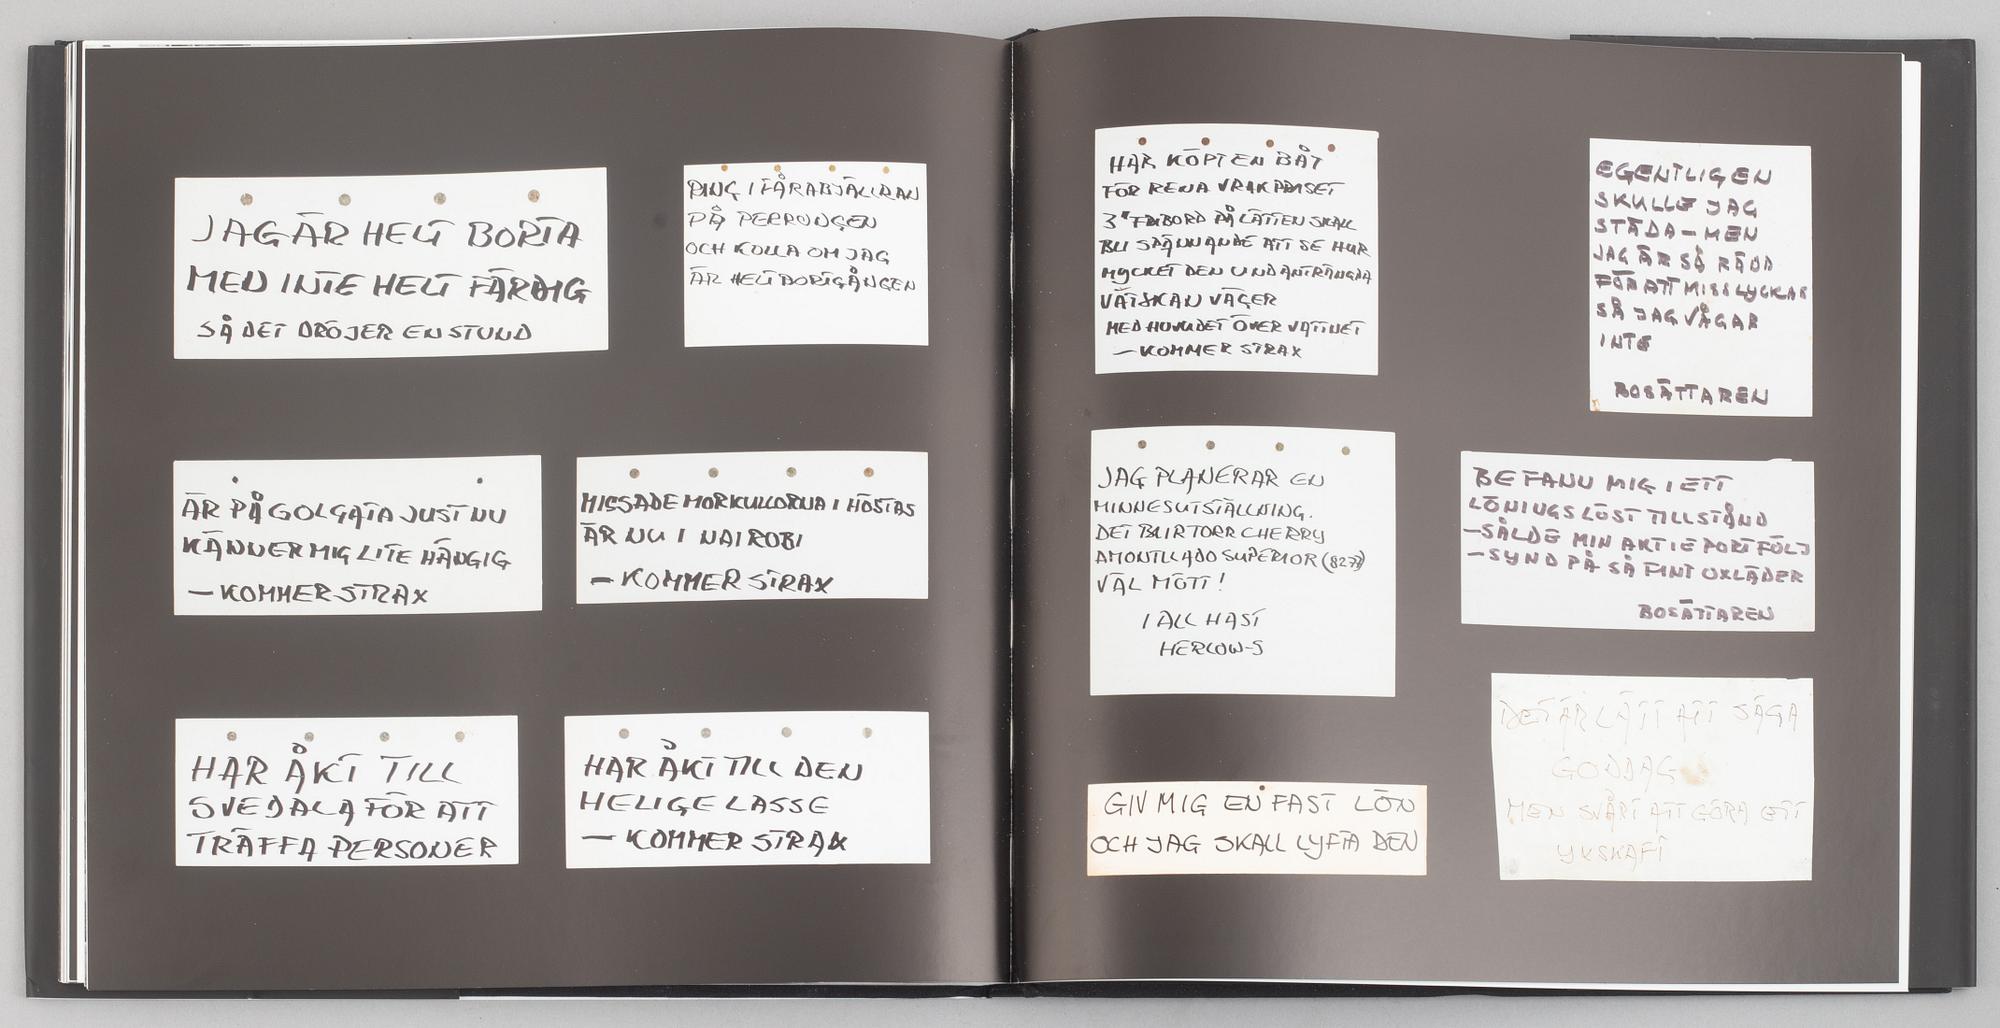 JAG ÄR HELT BORTA
MED INTE HELT FÄRDIG
SÅ DET DRÖJER EN STUND
PING I FÅRABJÄLLRAN
PÅ PERRONGEN
OCH KOLLA OM JAG
ÄR HELT BORTGÅNGEN
ÄR PÅ GOLGATA JUST NU
KÄNNER MIG LITE HÄNGIG
— KOMMER STRAX
MISSADE MORKULLORNA I HÖSTAS
ÄR NU I NAIROBI
— KOMMER STRAX
HAR ÅKT TILL
SVEDALA FÖR ATT
TRÄFFA PERSONER
HAR ÅKT TILL DEN
HELIGE LASSE
— KOMMER STRAX
HAR KÖPT EN BÅT
FÖR RENA VRAKPRISET
3" FRIBORD PÅ LÄTTEN SKALL
BLI SPÄNNANDE ATT SE HUR
MYCKET DEN UNDANTRÄNGDA
VÄTSKAN VÄGER
MED HUVUDET ÖVER VATTNET
— KOMMER STRAX
JAG PLANERAR EN
MINNESUTSTÄLLNING.
DET BLIR TORR CHERRY
AMONTILLADO SUPERIOR (8277)
VÄL MÖTT!
I ALL HAST
HERLOW-S
GIV MIG EN FAST LÖN
OCH JAG SKALL LYFTA DEN
EGENTLIGEN
SKULLE JAG
STÄDA – MEN
JAG ÄR SÅ RÄDD
FÖR ATT MISSLYCKAS
SÅ JAG VÅGAR
INTE
BOSÄTTAREN
BEFANN MIG I ETT
LÖNINGSLÖST TILLSTÅND
– SÅLDE MIN AKTIEPORTFÖLJ
– SYND PÅ SÅ FINT OXLÄDER
BOSÄTTAREN
DET ÄR LÄTT ATT SÄGA
GODDAG
MEN SVÅRT ATT GÖRA ETT
YXSKAFT